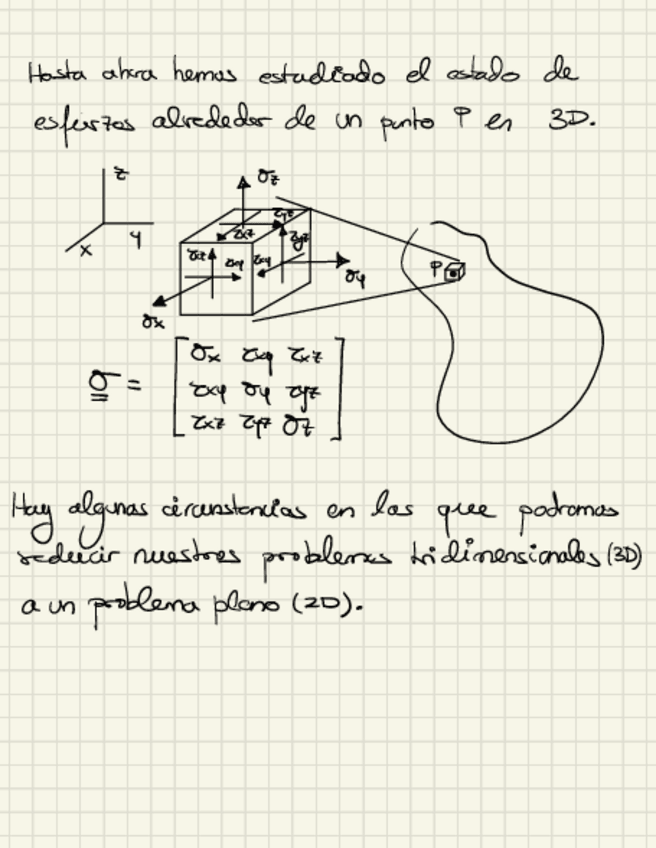 Hasta ahora hemos estudiado el estado de
esfuerzos alrededor de un punto P en 3D.
z
x y
σz
τxz τyz
τxz τxy τxy τyz
σy
σx
P
σ = [σx τxy τxz
τxy σy τyz
τxz τyz σz]
Hay algunas circunstancias en las que podremos
reducir nuestros problemas tridimensionales (3D)
a un problema plano (2D).